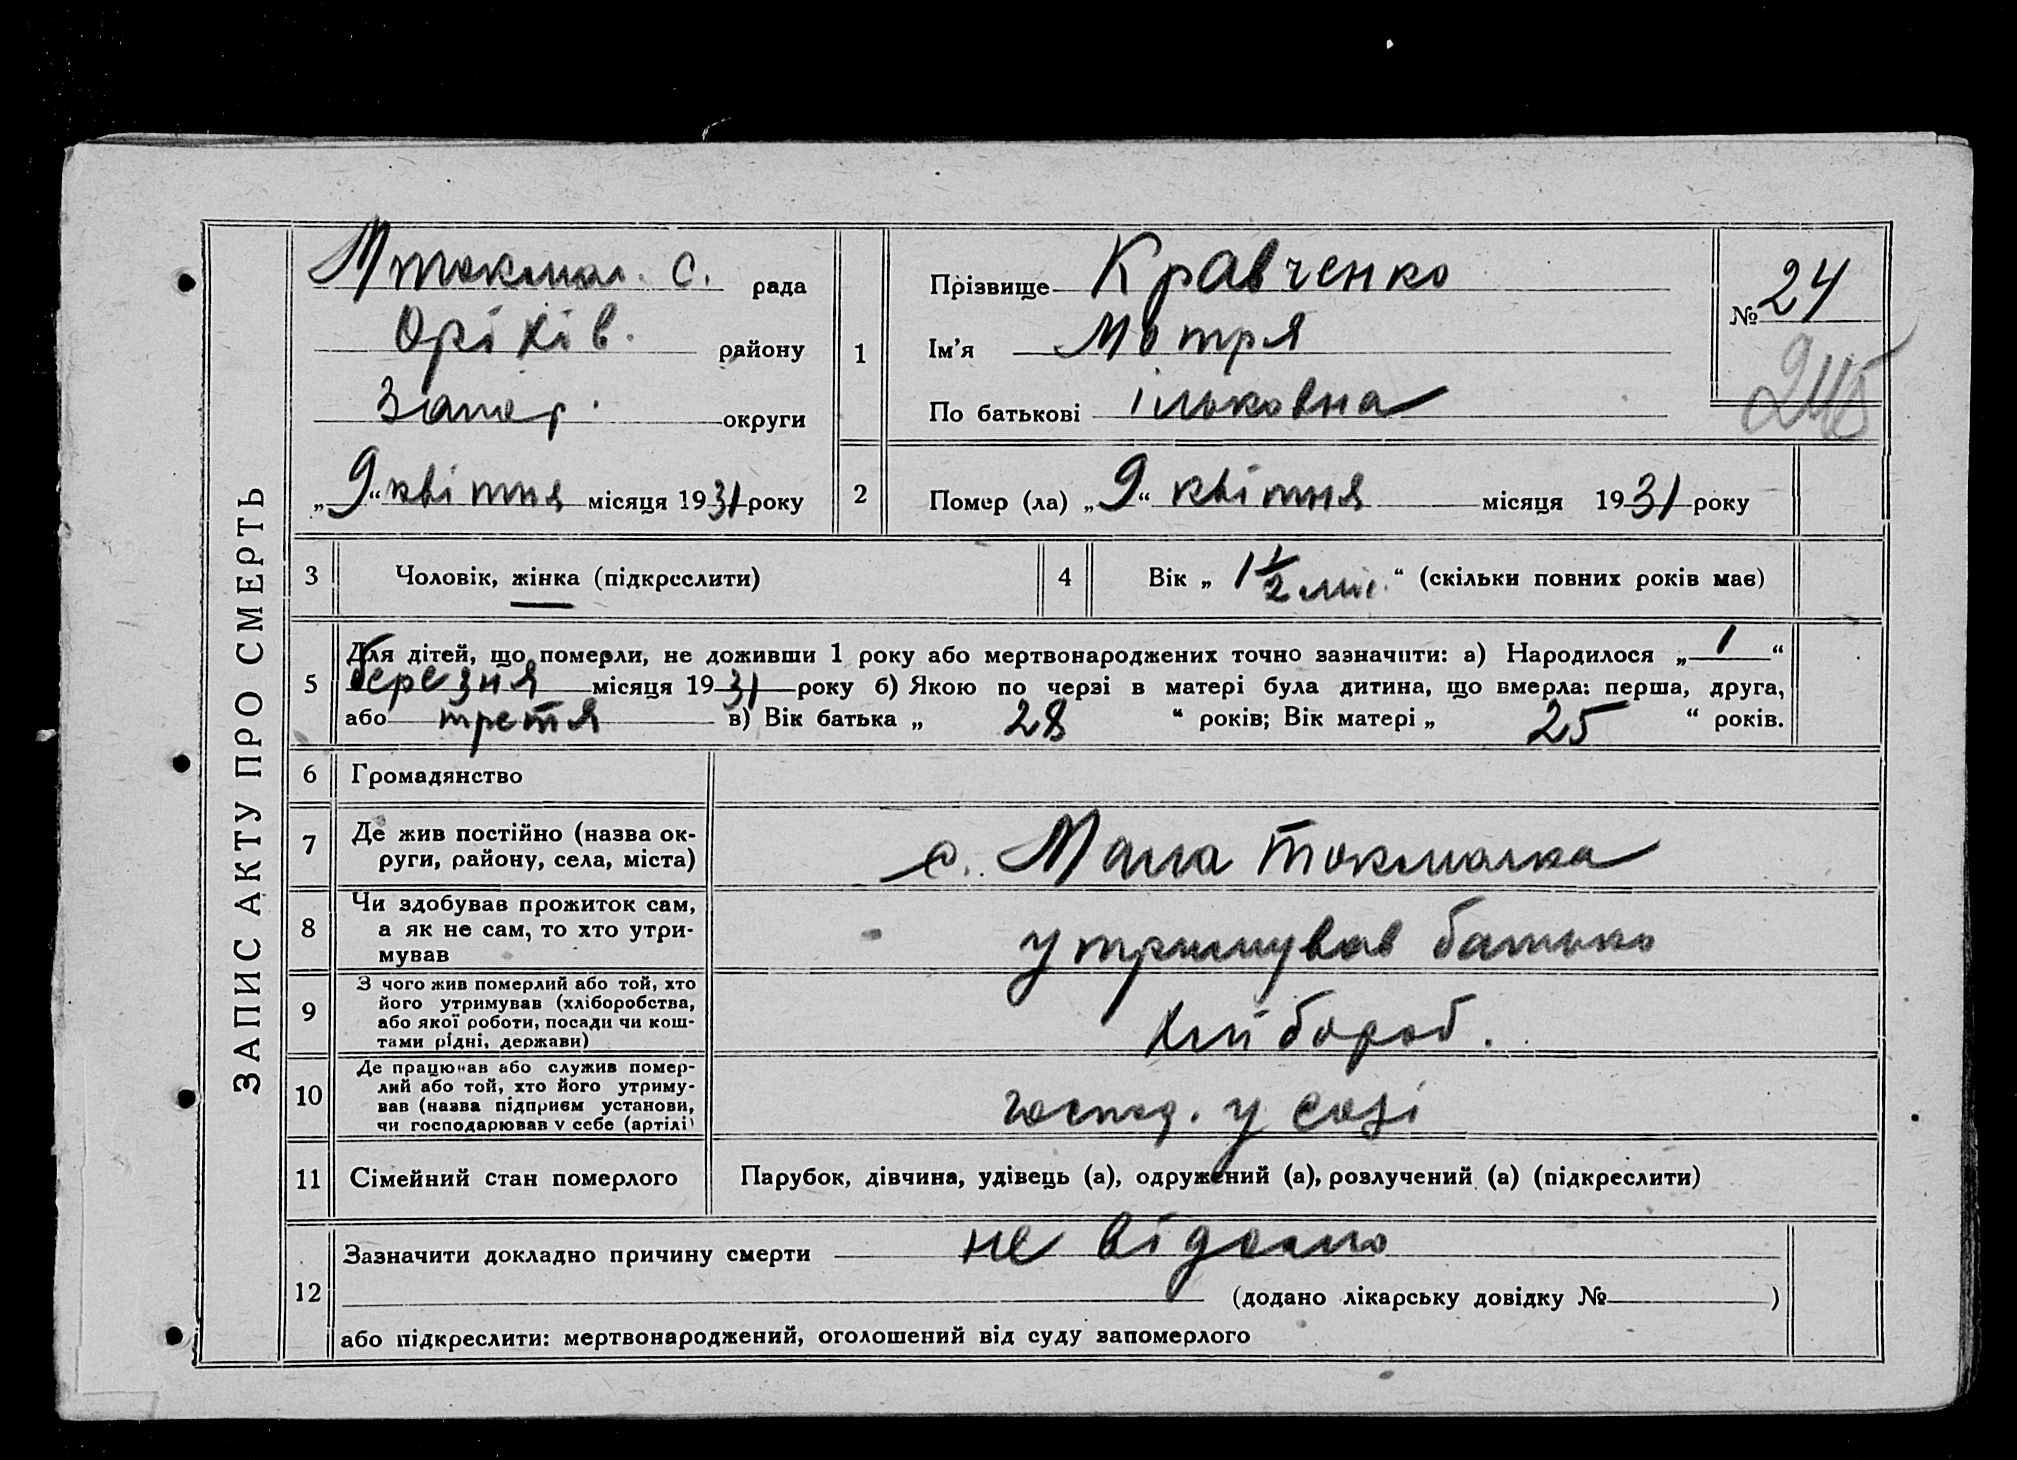 ЗАПИС АКТУ ПРО СМЕРТЬ
Мтокмал. с. рада
Оріхів. району
Запор. округи
„9“ квітня місяця 1931 року
1
Прізвище Кравченко
Ім'я Мотря
По батькові ільковна
№ 24
2
Помер (ла) „9“ квітня місяця 1931 року
3 Чоловік, жінка (підкреслити)
4 Вік „1 1/2 міс.“ (скільки повних років має)
5
Для дітей, що померли, не доживши 1 року або мертвонароджених точно зазначити: а) Народилося „1“
березня місяця 1931 року б) Якою по черзі в матері була дитина, що вмерла: перша, друга,
або третя в) Вік батька „28“ років; Вік матері „25“ років.
6 Громадянство
7 Де жив постійно (назва ок-
руги, району, села, міста)
с. Мала Токмачка
8 Чи здобував прожиток сам,
а як не сам, то хто утри-
мував
утримував батько
9 З чого жив померлий або той, хто
його утримував (хліборобства,
або якої роботи, посади чи кош-
тами рідні, держави)
хлібороб.
10 Де працював або служив помер-
лий або той, хто його утриму-
вав (назва підприєм установи,
чи господарював у себе (артілі)
господ. у созі
11 Сімейний стан померлого
Парубок, дівчина, удівець (а), одружений (а), розлучений (а) (підкреслити)
12
Зазначити докладно причину смерти не відомо
(додано лікарську довідку № )
або підкреслити: мертвонароджений, оголошений від суду запомерлого